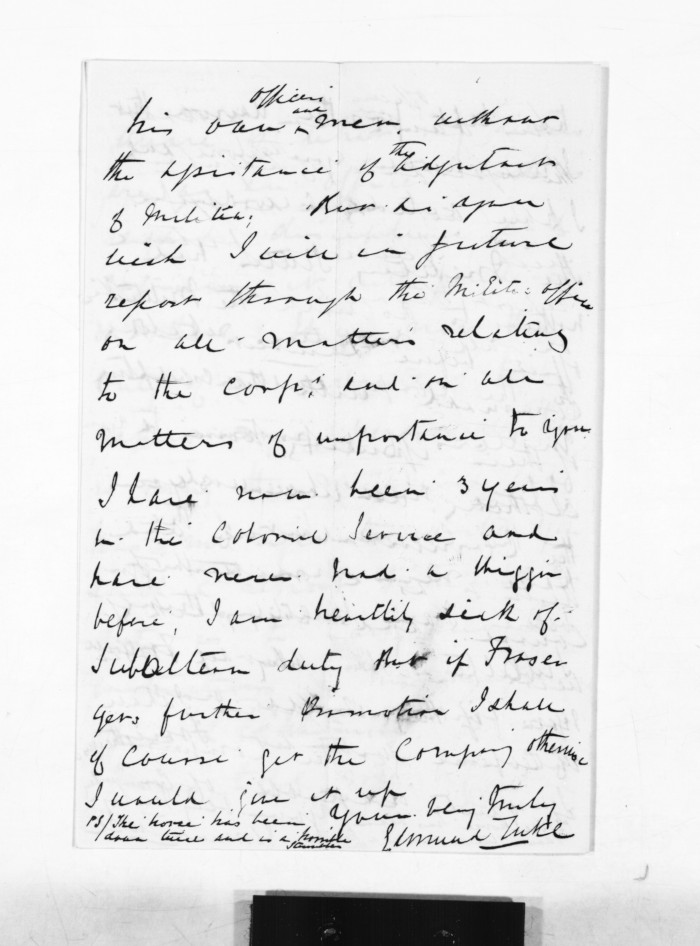 his own officers and men without
the assistance of the Adjutant
of Militia; But if you
wish I will in future
report through the Militia office
on all matters relating
to the corps; and on all
matters of importance to you
I have now been 3 years
in the Colonial Service and
have never had a wigging
before, I am heartily sick of
Subaltern duty but if Fraser
gets further Promotion I shall
of course get the Company otherwise
I would give it up
Yours very truly
Edmund Tuke
PS/ The horse has been
down twice and is a horrible